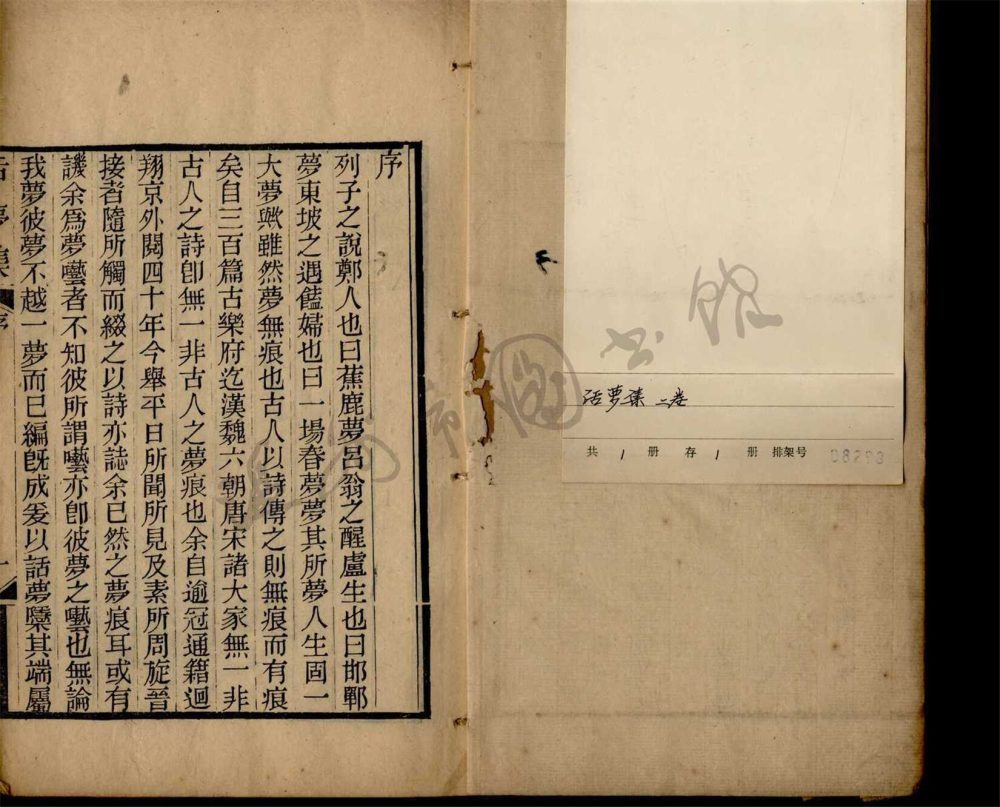 話夢集 二卷
共 1 册 存 1 册 排架号
序
列子之說鄭人也曰蕉鹿夢呂翁之醒盧生也曰邯鄲
夢東坡之遇饁婦也曰一場春夢夢其所夢人生固一
大夢歟雖然夢無痕也古人以詩傳之則無痕而有痕
矣自三百篇古樂府迄漢魏六朝唐宋諸大家無一非
古人之詩卽無一非古人之夢痕也余自逾冠通籍迴
翔京外閱四十年今舉平日所聞所見及素所周旋晉
接者隨所觸而綴之以詩亦誌余已然之夢痕耳或有
譏余爲夢囈者不知彼所謂囈亦卽彼夢之囈也無論
我夢彼夢不越一夢而已編旣成爰以話夢櫽其端屬